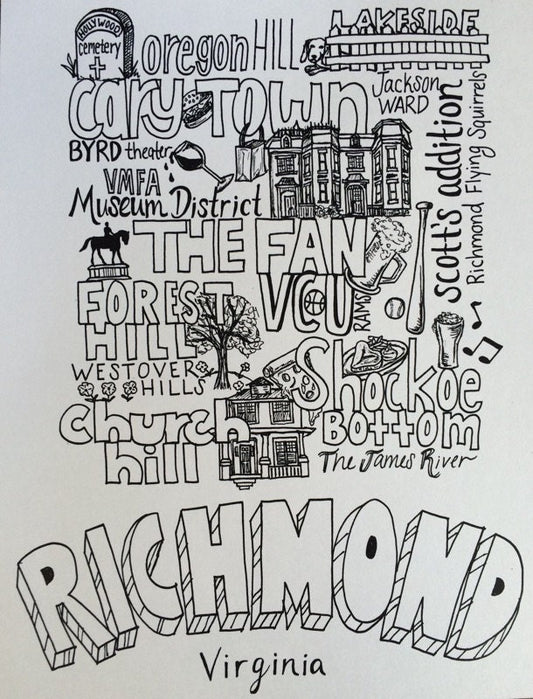 HOLLYWOOD
cemetery
oregon HILL
LAKESIDE
Cary Town
Jackson
WARD
BYRD theater
VMFA
Museum District
scott's addition
Richmond Flying Squirrels
THE FAN
FOREST
HILL
VCU
RAMS
WESTOVER
HILLS
Shockoe
Bottom
church
hill
The James River
RICHMOND
Virginia